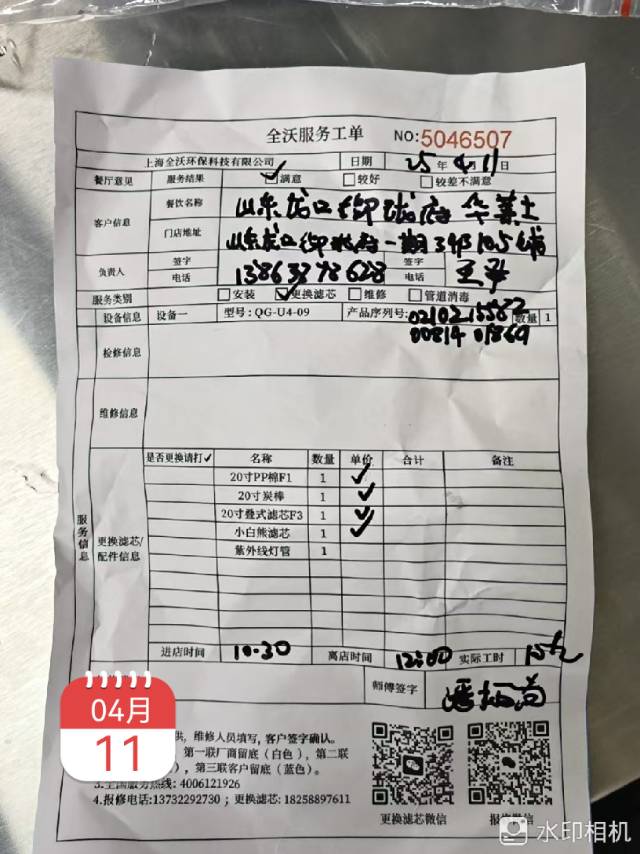 全沃服务工单 NO:5046507
上海全沃环保科技有限公司 日期 25年4月11日
餐厅意见 服务结果 ✓满意 较好 较差不满意
客户信息 餐饮名称 山东龙口御珑府华莱士
门店地址 山东龙口御珑府一期
负责人 签字 电话 13863878628 签字 电话
服务类别 安装 ✓更换滤芯 维修 管道消毒
设备信息 设备一 型号: QG-U4-09 产品序列号: 0210215582 数量 1
00814 01869
检修信息
维修信息
服务信息
更换滤芯/配件信息
是否更换请打✓ 名称 数量 单价 合计 备注
20寸PP棉F1 1 ✓
20寸炭棒 1 ✓
20寸叠式滤芯F3 1 ✓
小白熊滤芯 1 ✓
紫外线灯管 1
进店时间 10:30 离店时间 12:00 实际工时
师傅签字
供，维修人员填写，客户签字确认。
第一联厂商留底（白色），第二联
），第三联客户留底（蓝色）。
3.全国服务热线: 4006121926
4.报修电话:13732292730 ; 更换滤芯: 18258897611
更换滤芯微信 报修微信
04月
11
水印相机